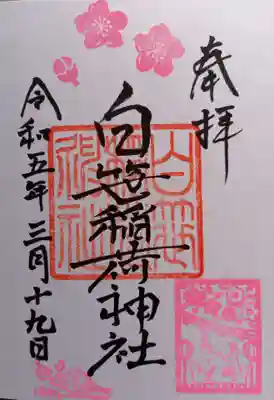 奉拝
白笹稲荷神社
令和五年三月十九日